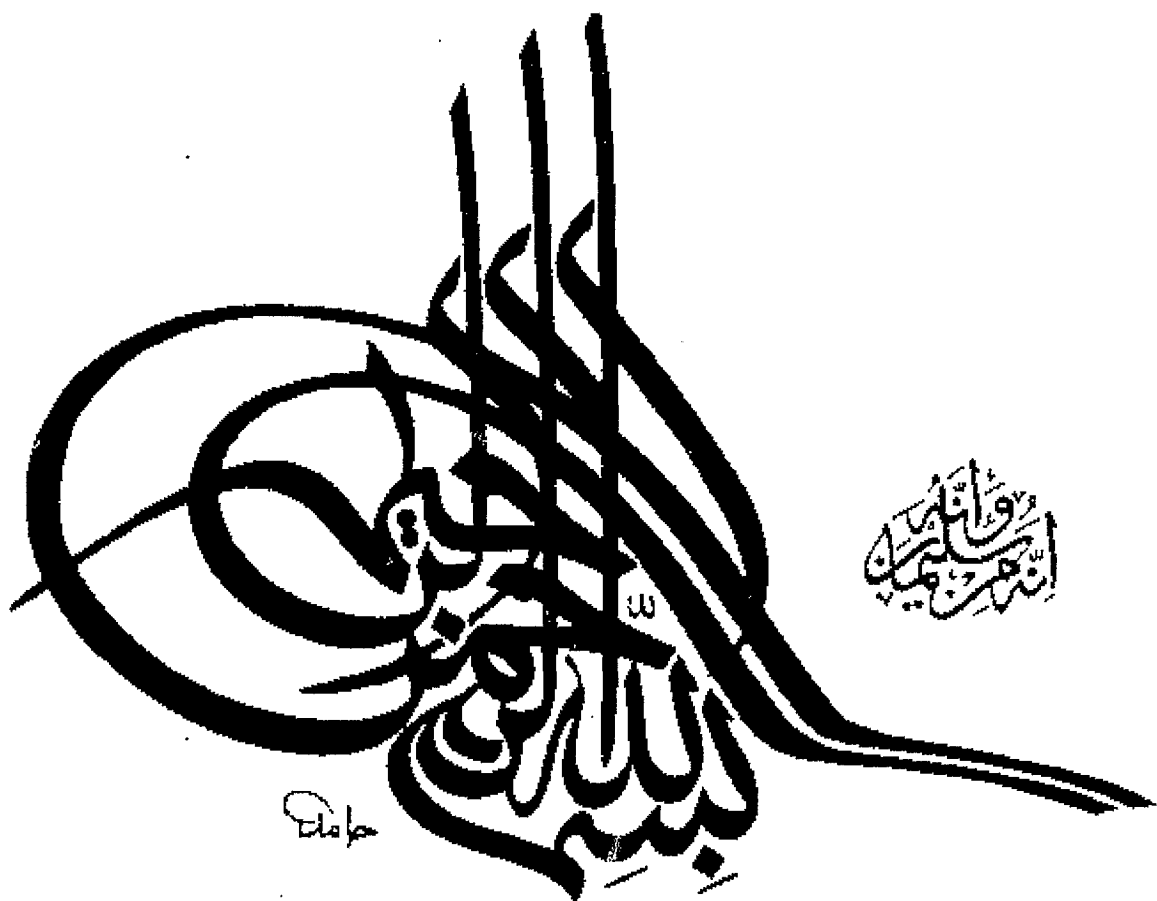 بِسِمِ اللّٰه الرحمن الرحيم
إنّه من سليمان وَإنّه